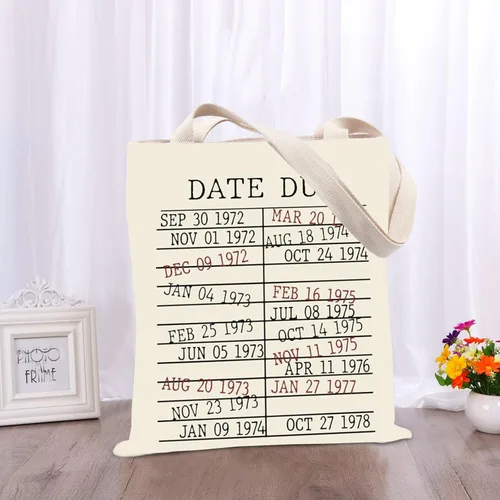 DATE DU
SEP 30 1972
NOV 01 1972
DEC 09 1972
JAN 04 1973
FEB 25 1973
JUN 05 1973
AUG 20 1973
NOV 23 1973
JAN 09 1974
MAR 20
AUG 18 1974
OCT 24 1974
FEB 16 1975
JUL 08 1975
OCT 14 1975
NOV 11 1975
APR 11 1976
JAN 27 1977
OCT 27 1978
PHOTO
FRAME